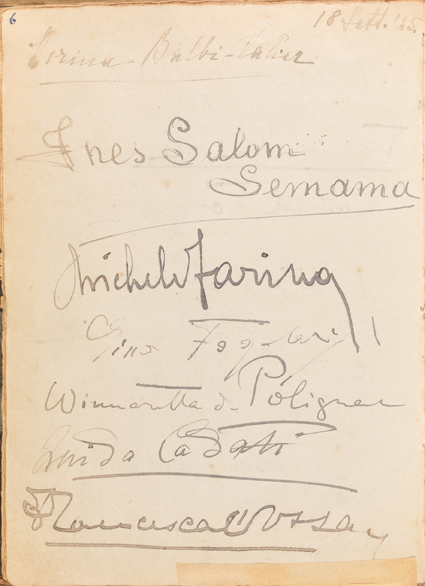 6
18 Sett. '25.
Corina Balbi-Valier
Ines Salom
Semama
Michele Farina
Gino Fogolari
Winnaretta de Polignac
Guido Cadorin
Francesca D'Ossay